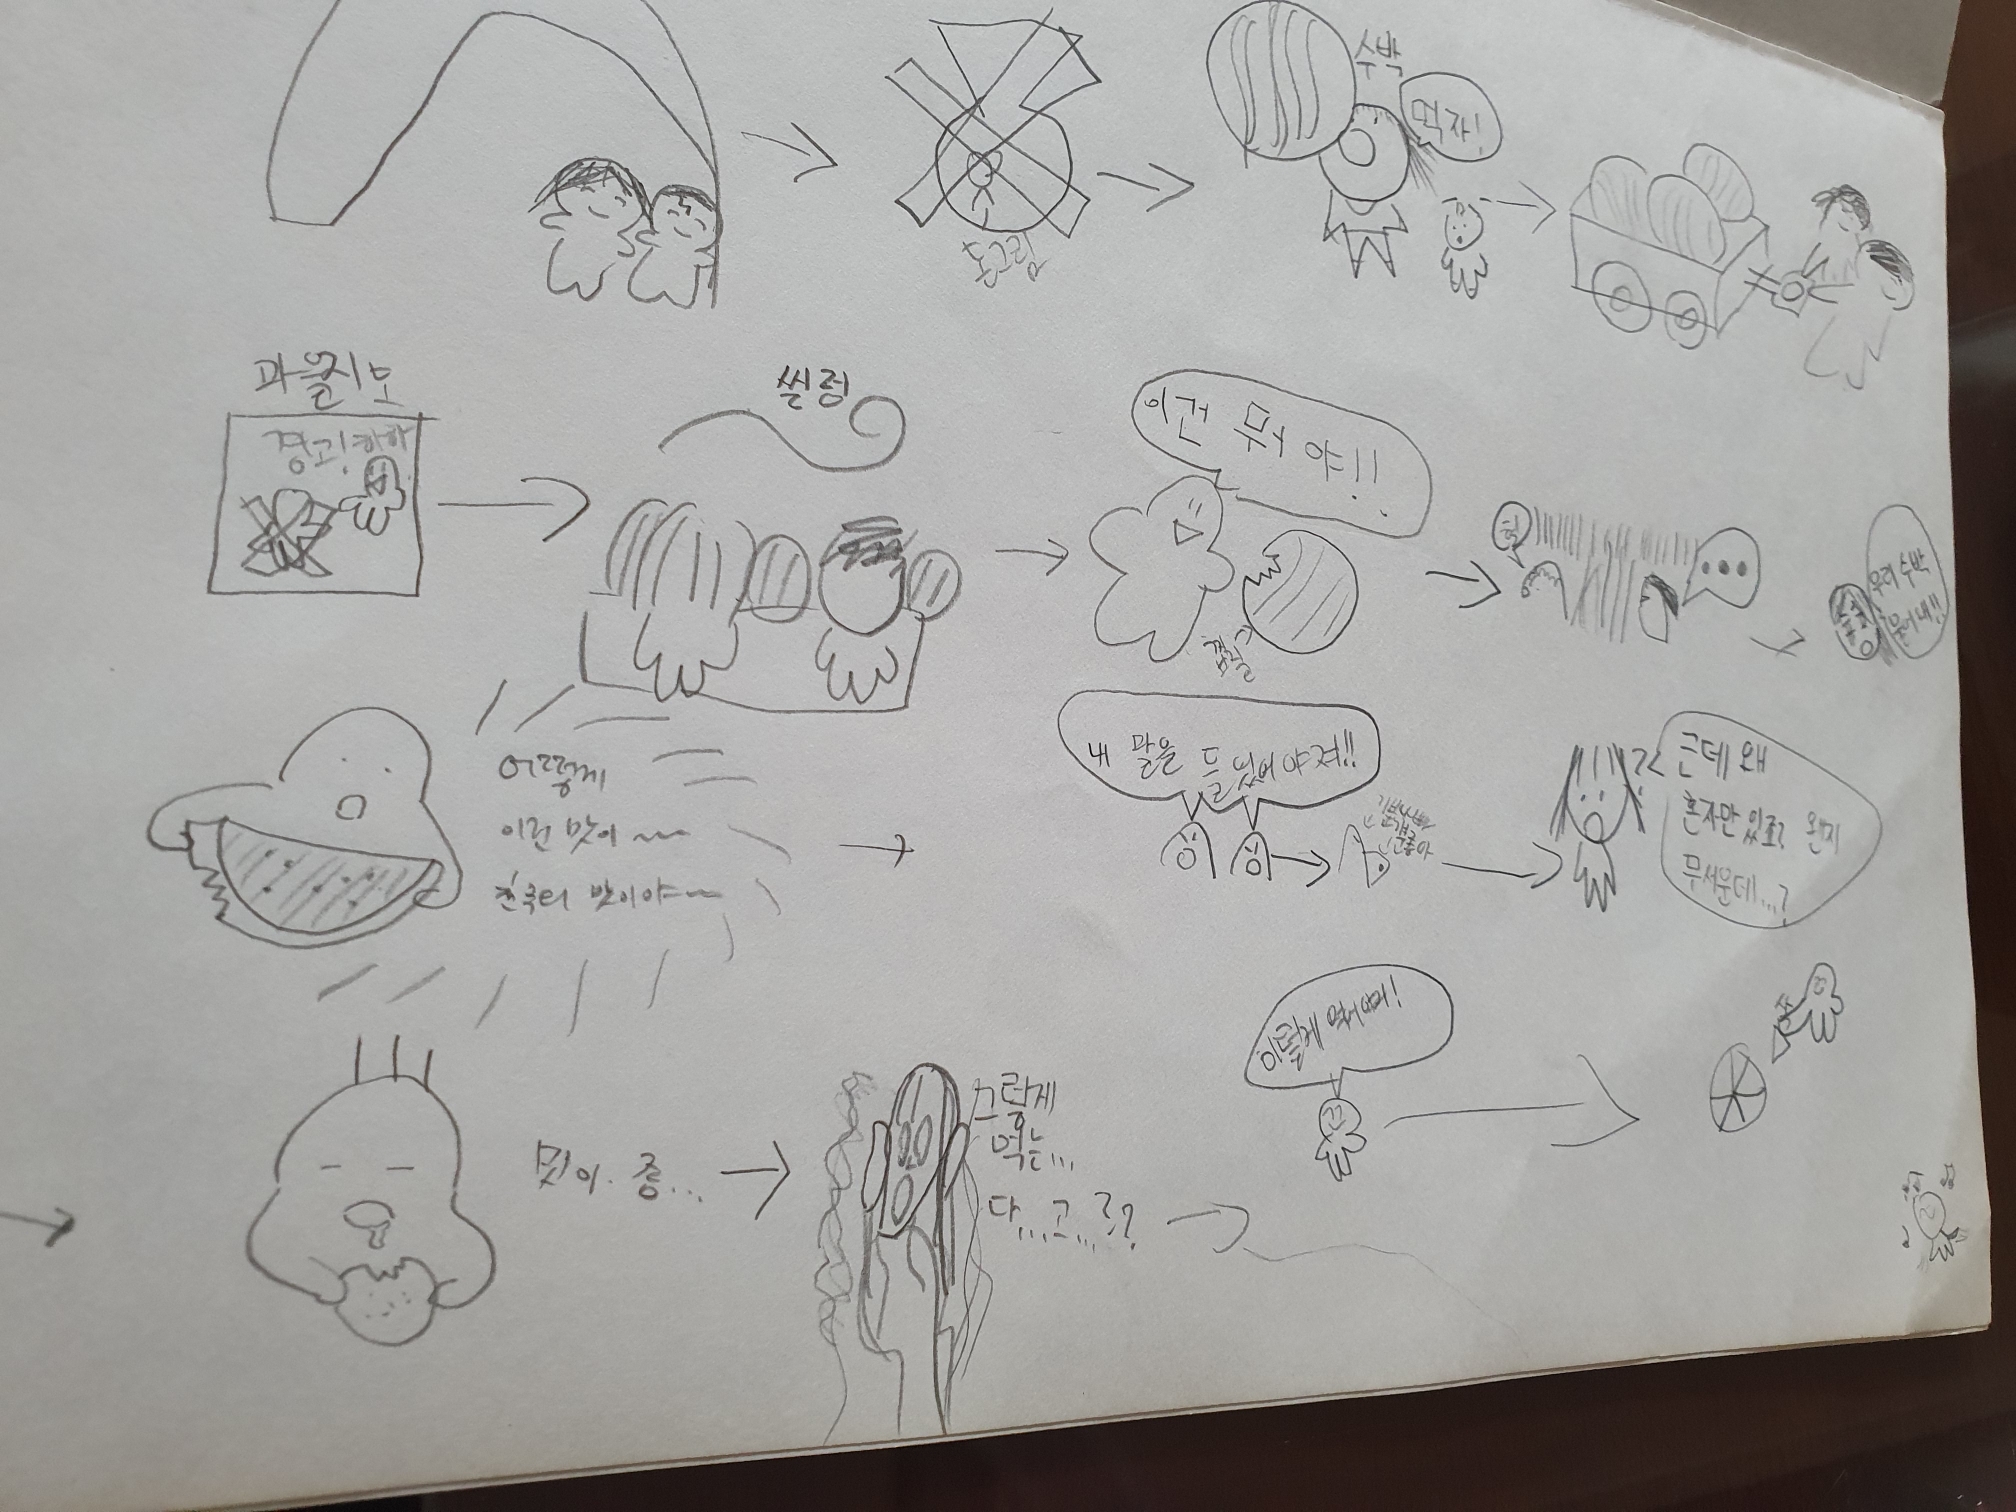 수박
먹자!
과일지도
경고! 하하
씰렁
이건 뭐야!!
꿈질
헉
...
우리 수박
물어내!!
어떻게
이런 맛이~~
천국의 맛이야~~
내 말을 들었어야져!!
??
근데 왜
혼자만 있죠? 왠지
무서운데...?
맛이. 종...
그렇게
먹는...
다...고...?
이렇게 먹어야대!